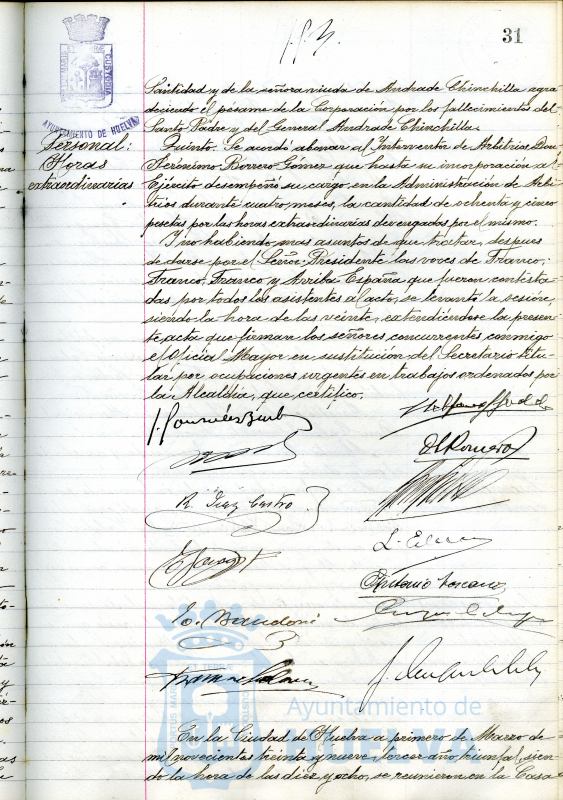 31
AYUNTAMIENTO DE HUELVA
Personal:
Horas
extraordinarias
Santidad y de la señora viuda de Andrade Chinchilla agra-
deciendo el pésame de la Corporación por los fallecimientos del
Santo Padre y del General Andrade Chinchilla.
Quinto. Se acordó abonar al Interventor de Arbitrios Don
Jerónimo Borrero Gómez que hasta su incorporación al
Ejército desempeñó su cargo, en la Administración de Arbi-
trios durante cuatro meses, la cantidad de ochenta y cinco
pesetas por las horas extraordinarias devengadas por el mismo.
Y no habiendo mas asuntos de que tratar, despues
de darse por el Señor Presidente las voces de Franco,
Franco, Franco y Arriba España que fueron contesta-
das por todos los asistentes al acto, se levantó la sesión
siendo la hora de las veinte, extendiéndose la presen-
te acta que firman los señores concurrentes conmigo
el Oficial Mayor en sustitución del Secretario titu-
lar por ocupaciones urgentes en trabajos ordenados por
la Alcaldía, que certifico.
R. Diaz Castro
Antonio Toscano
Ayuntamiento de
HUELVA
En la Ciudad de Huelva a primero de Marzo de
mil novecientos treinta y nueve, tercer año triunfal, sien-
do la hora de las diez y ocho, se reunieron en la Casa